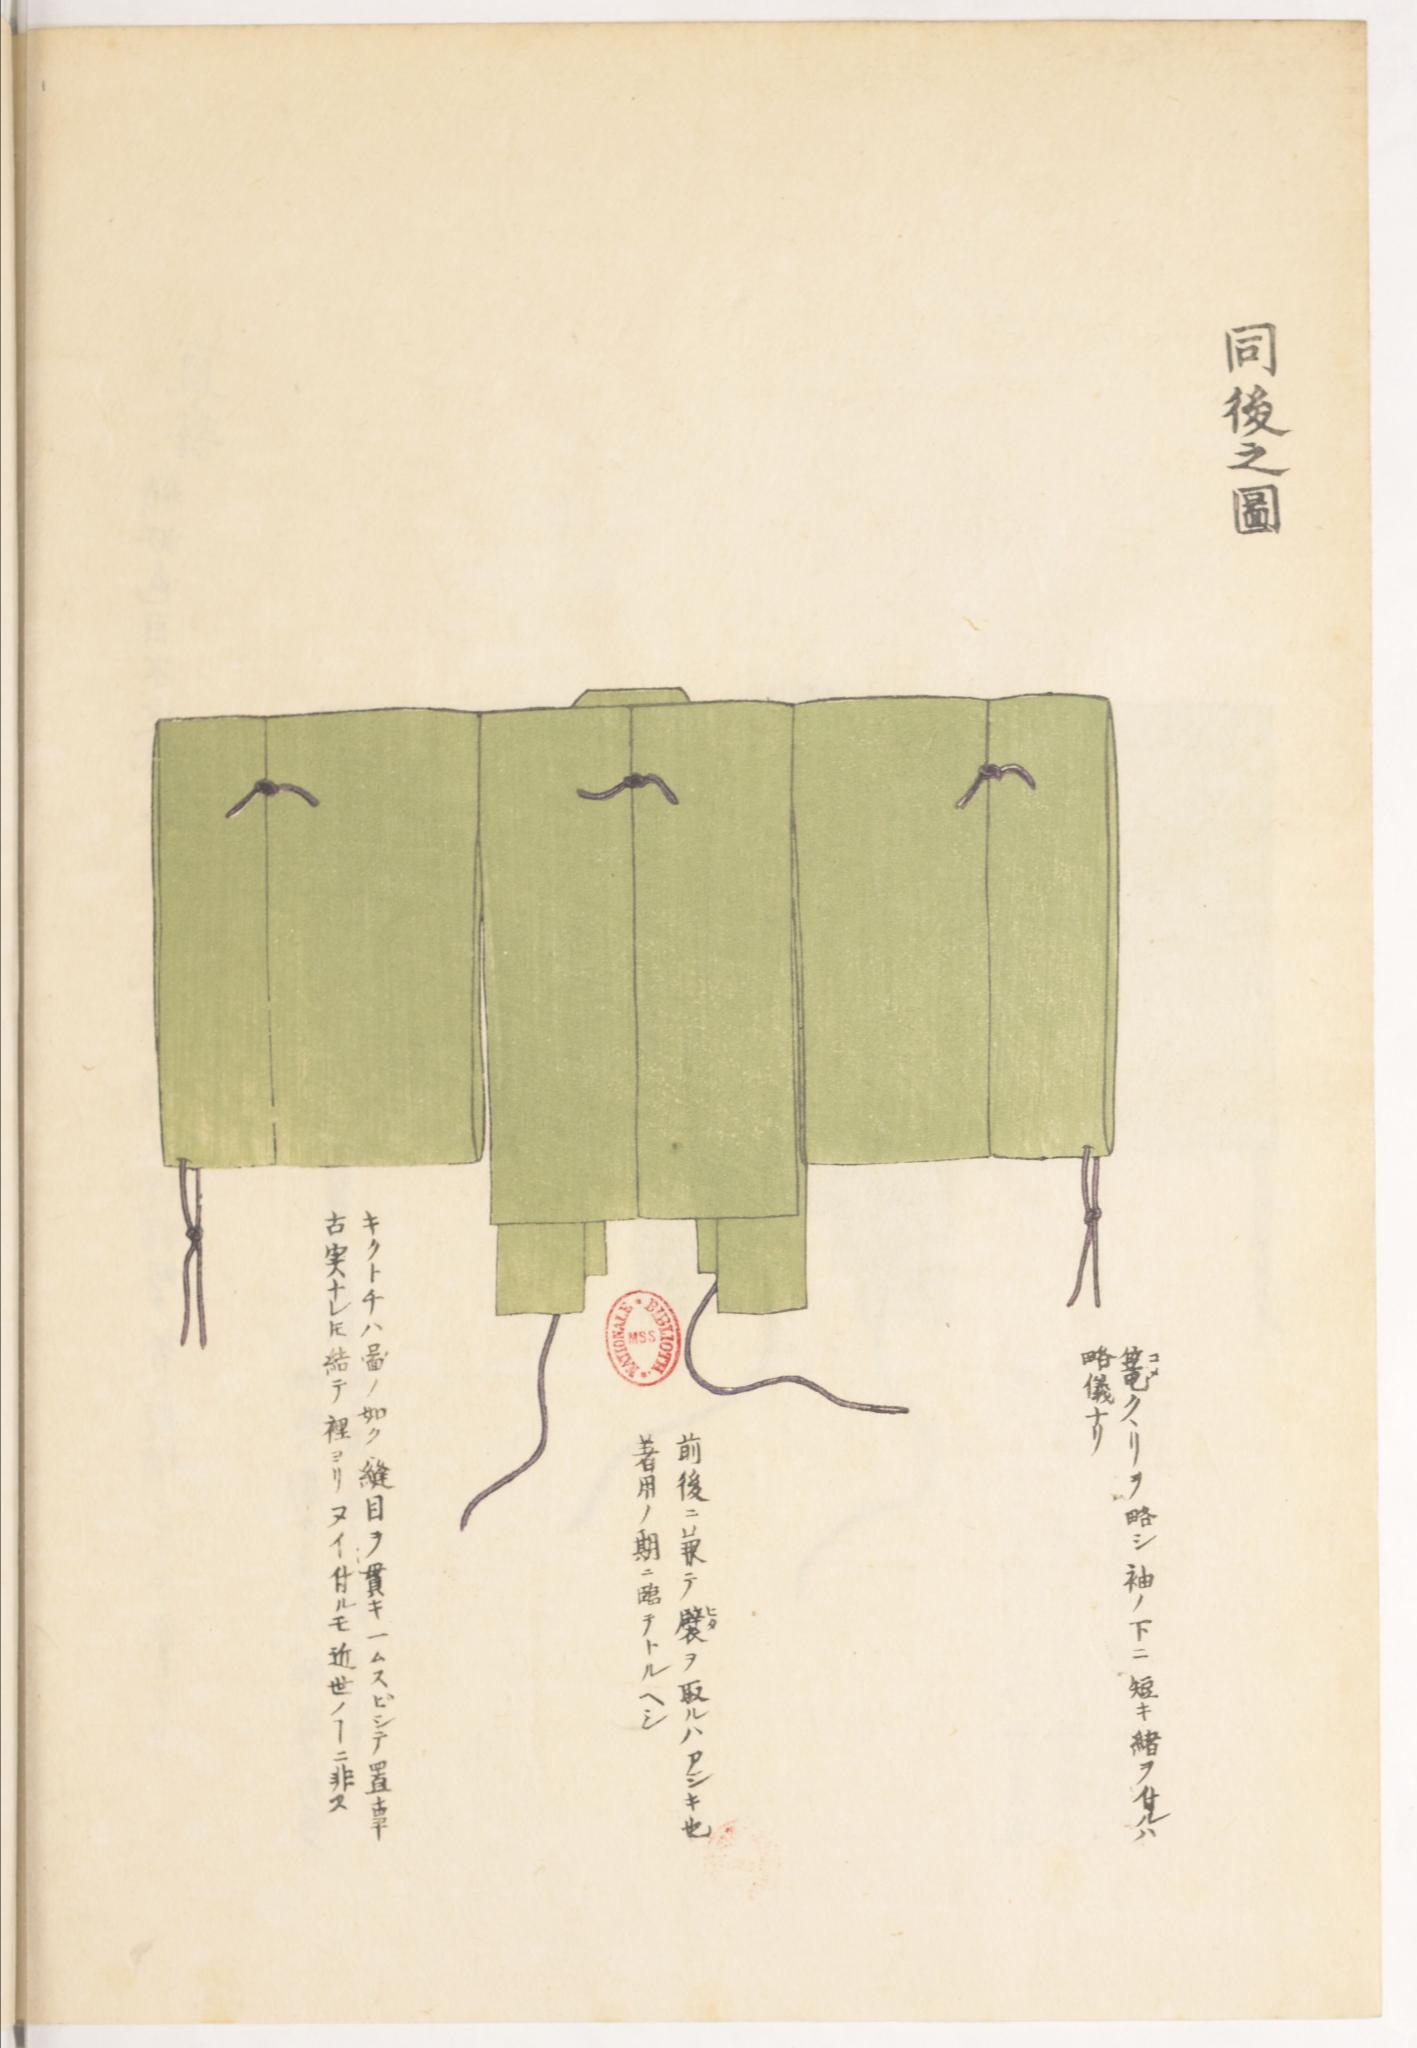 同後之圖
篭クヽリヲ略シ袖ノ下ニ短キ緒ヲ付ルハ
コメ
略儀ナリ
前後ニ兼テ襞ヲ取ルハアシキ也
ヒダ
著用ノ期ニ臨テトルヘシ
キクトチハ圖ノ如ク縫目ヲ貫キ一ムスビシテ置事
古実ナレ𪜈結テ裡ヨリヌイ付ルモ近世ノヿニ非ス
BIBLIOTH. NATIONALE
MSS